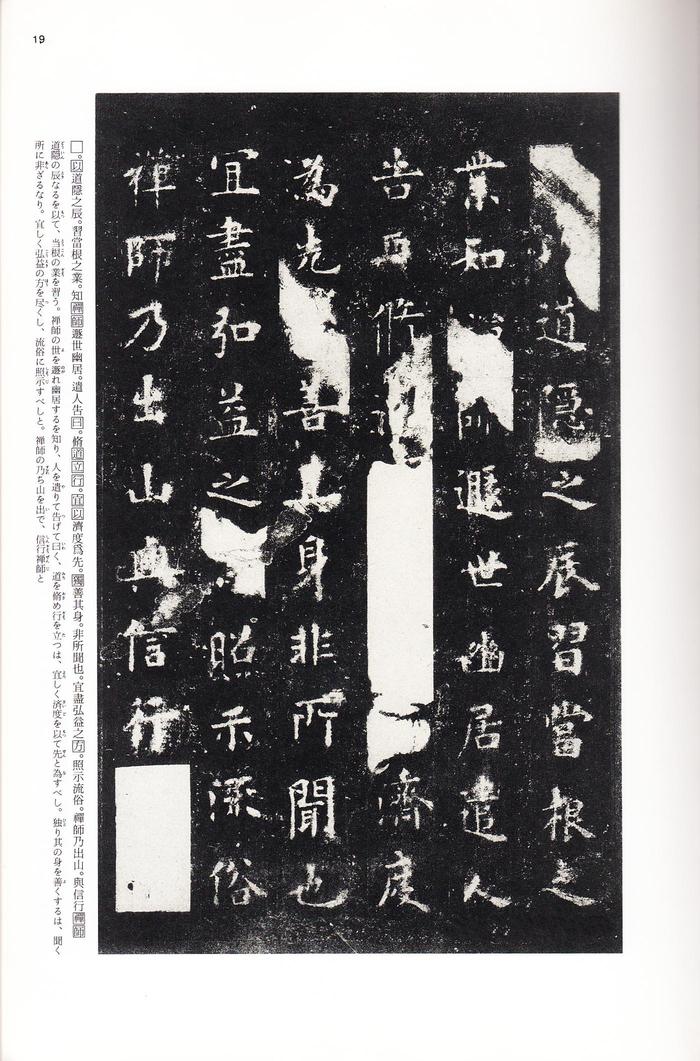 19
道隱之辰習當根之
業知師遯世幽居遣人
告曰脩濟度
為先善其身非所聞也
宜盡弘益之照示流俗
禅師乃出山與信行
□。以道隱之辰。習當根之業。知禪師遯世幽居。遣人告曰。脩道立行。宜以濟度爲先。獨善其身。非所聞也。宜盡弘益之方。照示流俗。禪師乃出山。與信行禪師
道隠の辰なるを以て、当根の業を習う。禅師の世を遯れ幽居するを知り、人を遣りて告げて曰く、道を脩め行を立つは、宜しく済度を以て先と為すべし。独り其の身を善くするは、聞く
所に非ざるなり。宜しく弘益の方を尽くし、流俗に照示すべしと。禅師の乃ち山を出で、信行禅師と